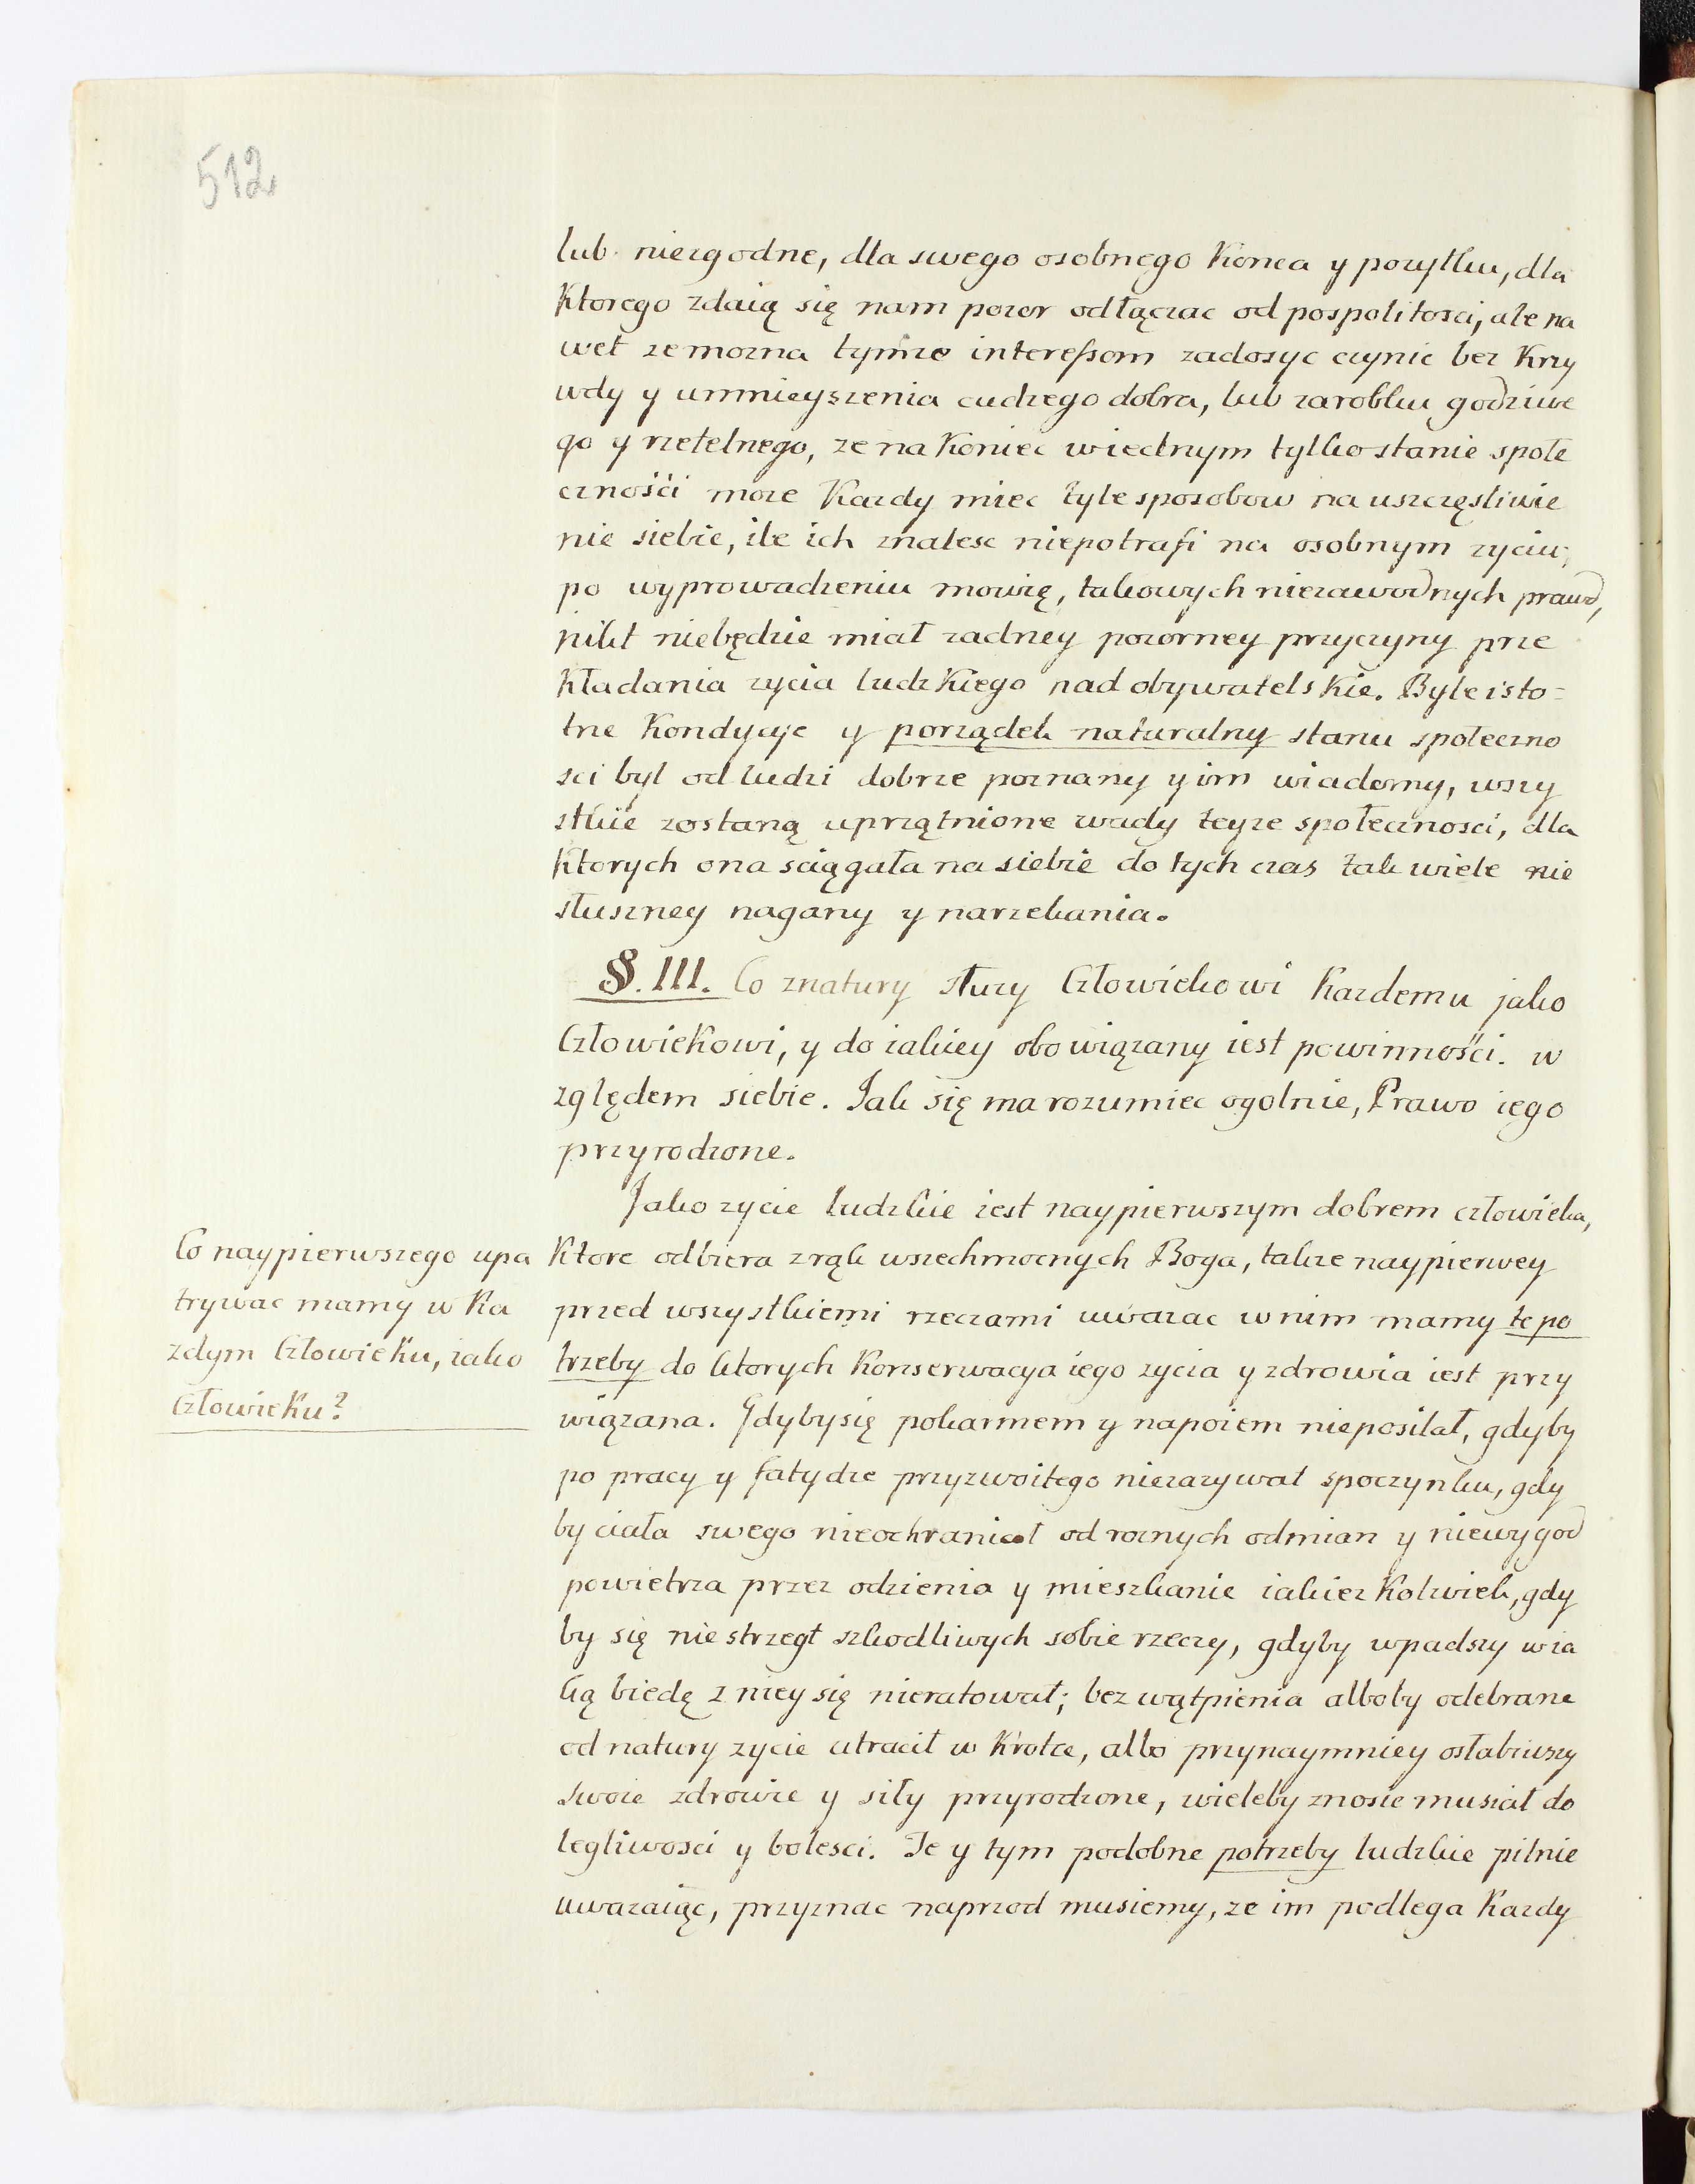 512
lub niezgodne, dla swego osobnego Konca y pozytku, dla
Ktorego zdaią się nam pozor odłączac od pospolitosci, ale na
wet ze mozna tymze interessom zadosyc czynic bez Krzy
wdy y umnieyszenia cudzego dobra, lub zarobku godziwe
go y rzetelnego, ze na Koniec w iednym tylko stanie społe
cznośći moze Kazdy miec tyle sposobow na uszczęsliwie
nie siebie, ile ich znalesc niepotrafi na osobnym zyciu;
po wyprowadzeniu mowię, takowych niezawodnych prawd,
nikt niebędzie miał zadney pozorney przyczyny prze
Kładania zycia ludzKiego nad obywatelsKie. Byle isto=
tne Kondycye y porządek naturalny stanu społeczno
sci był od ludzi dobrze poznany y im wiadomy, wszy
stkie zostaną uprzątnione wady teyze społecznosci, dla
Ktorych ona sciągała na siebie do tych czas tak wiele nie
słuszney nagany y narzekania.
§. III. Co znatury słuzy Człowiekowi Kazdemu jako
CzłowieKowi, y do iakiey obowiązany iest powinnośći. w
zględem siebie. Jak się ma rozumiec ogolnie, Prawo iego
przyrodzone.
Jako zycie ludzkie iest naypierwszym dobrem człowieka,
Co naypierwszego upa
trywac mamy w Ka
zdym CzłowieKu, iako
CzłowieKu?
Ktore odbiera z rąk wszechmocnych Boga, takze naypierwey
przed wszystkiemi rzeczami uwazac w nim mamy te po
trzeby do ktorych Konserwacya iego zycia y zdrowia iest przy
wiązana. Gdyby się pokarmem y napoiem nieposilał, gdyby
po pracy y fatydze przyzwoitego niezazywał spoczynku, gdy
by ciała swego nieochraniał od roznych odmian y niewygod
powietrza przez odzienia y mieszkanie iakiez Kolwiek, gdy
by się nie strzegł szkodliwych sobie rzeczy, gdyby wpadszy w ia
ką biedę z niey się nieratował; bez wątpienia alboby odebrane
od natury zycie utracił w Krotce, albo przynaymniey osłabiwszy
swoie zdrowie y siły przyrodzone, wieleby znosic musiał do
legliwosci y bolesci. Te y tym podobne potrzeby ludzkie pilnie
uwazaiąc, przyznac naprzod musiemy, ze im podlega Kazdy